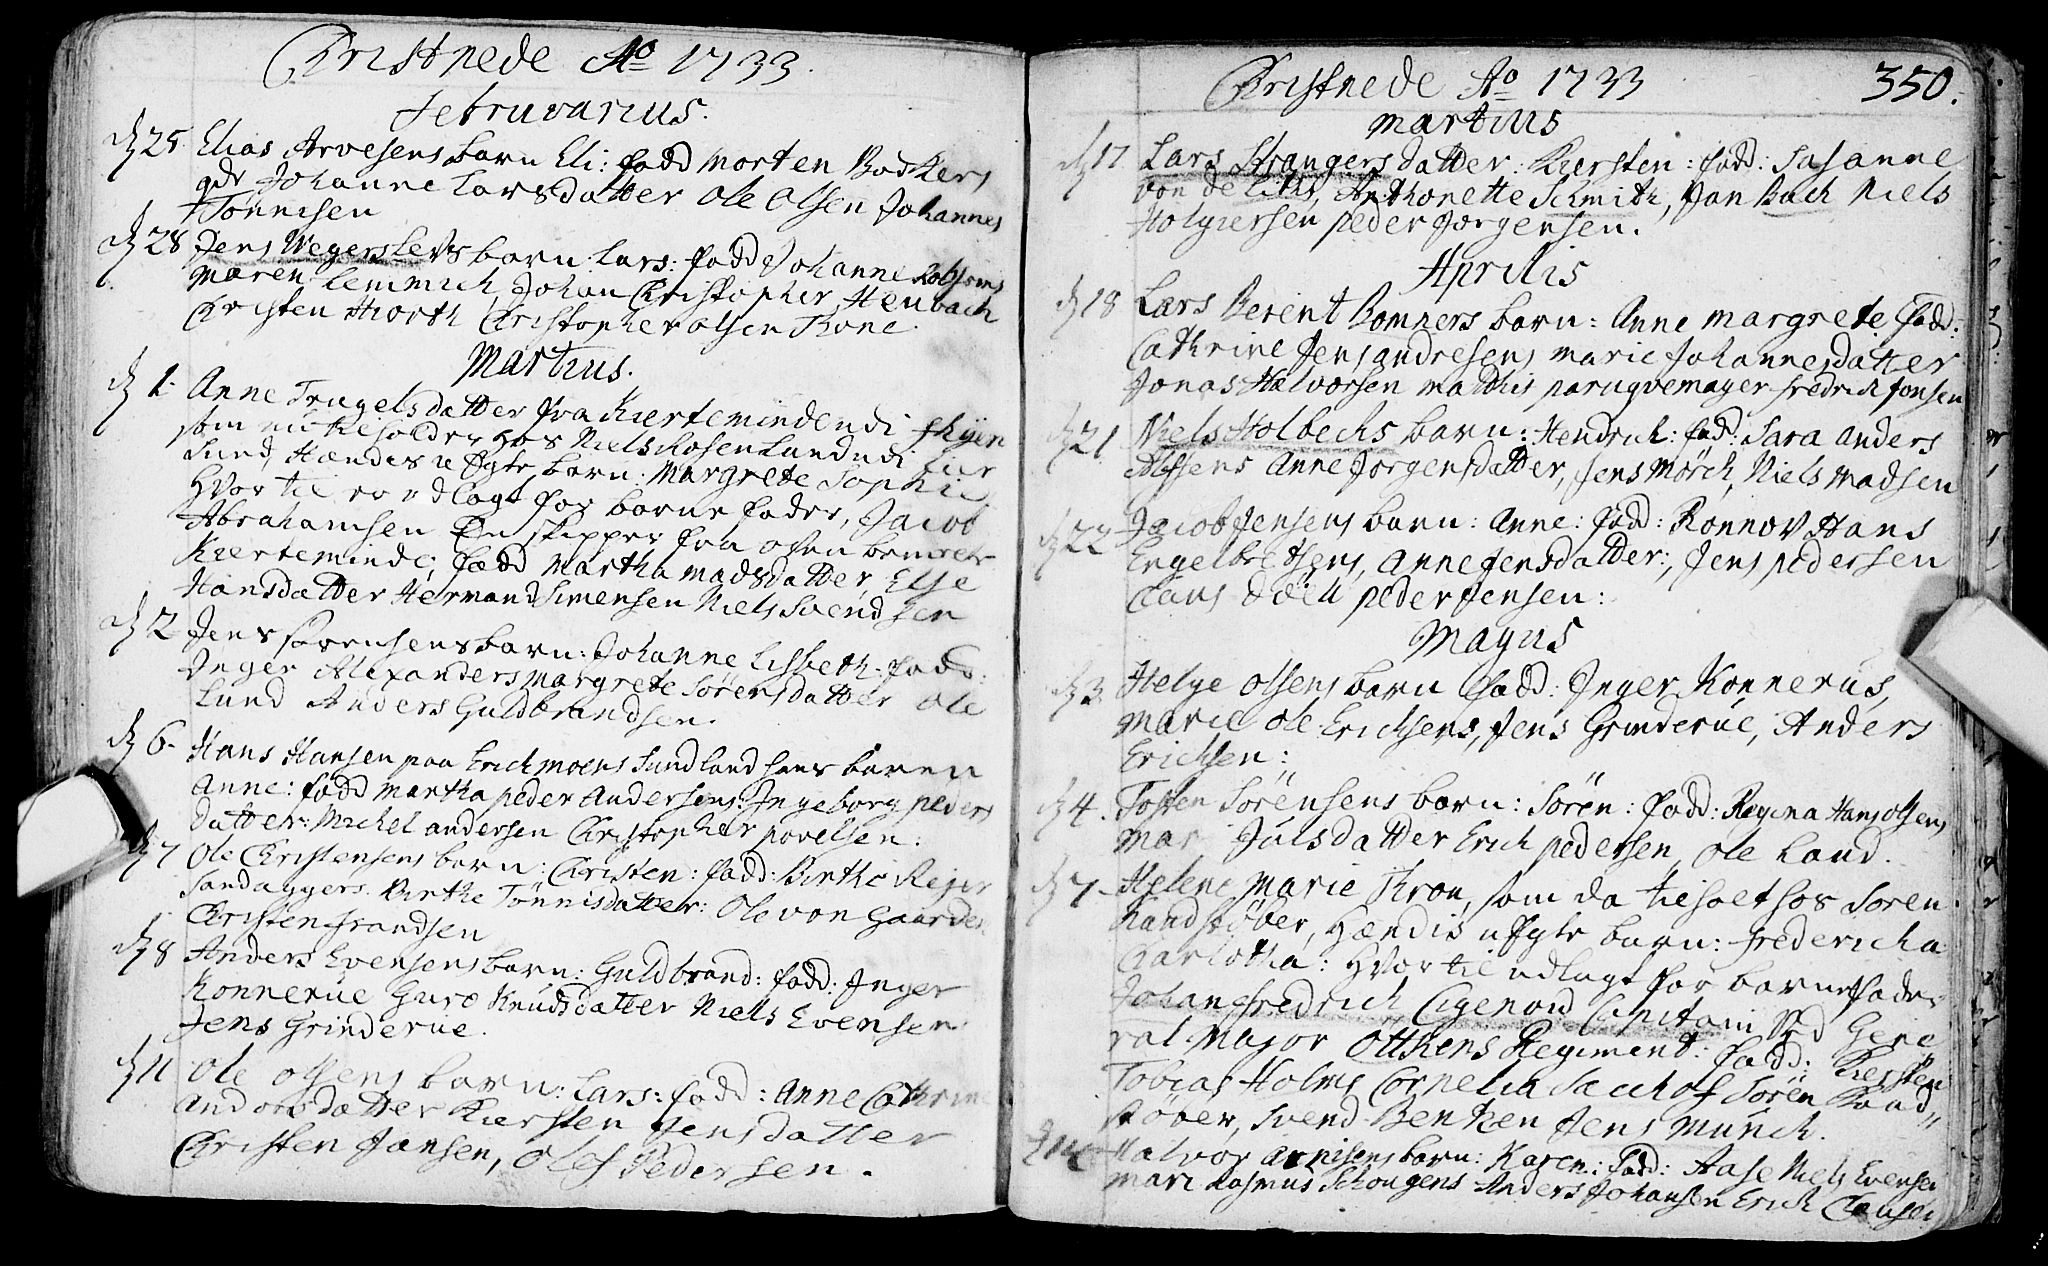 Christnede Ao 1733.
Februvarius.
d 25 Elias Arvesens barn Eli: fadd Morten Bødkers
gdr Johanne Larsdatter Ole Olsen Johannes
Tønnisen
d 28 Jens Wegerslevs barn: Lars: fadd Johanne
Maren Lemmich Johan Christopher Heubach
Christen Hiorth Christopher Olsen Kone.
Martius.
d 1. Anne Trugels datter fra Kierteminde udi Fhyen
som nu beholder hos Niels Rosenlund udi
Sund, Hændis u Egte barn: Margrete Sophie
Hvor til er udlagt for barne fader, Jacob
Abrahamsen En skipper fra
Kierteminde; fadd Martha Madsdatter, Else
Hansdatter Herman Simensen Niels Svendsen
d 2 Jens Sørensens barn: Johanne Lisbeth: fadd:
Inger Alexanders Margrete Sørensdatter Ole
Lund Anders Guldbrandsen.
d 6. Hans Hansen paa Erichmoens Sundland hans barn
Anne: fadd Martha Peder Andersens: Ingeborg Peders
datter: Michel Andersen Christopher Povelsen:
d 7 Ole Christensens barn: Christen: fadd: Birthe Rejer
Sandaggers. Birthe Tønnisdatter: Ole von Gaarden
Christen Frandsen
d 8 Anders Evensens barn: Guldbrand: fadd: Inger
Konnerue Guro Knudsdatter Niels Evensen
Jens Grinderue.
d 11 Ole Olsens barn: Lars: fadd: Anne Cathrine
Andersdatter Kiersten Jensdatter
Christen Jansen, Oles Pedersen.
Christnede Ao 1733 350.
Martius
d 17. Lars Strangers datter: Kiersten: fadd: Susanne
von de Anthonette Schmith, Jan Bach Niels
Holgiersen Peder Jørgensen.
Aprilis
d 18 Lars Berent Bomners barn: Anne Margrete fadd:
Cathrine Jens Andresens Marie Johannesdatter
Jonas Halvorsen Matthis parugvemager Fredrich Jonsen
d 21. Niels Holbechs barn: Hendrich: fadd: Sara Anders
Anne Jørgensdatter, Jens Mørch, Niels Madsen
d 22 Jacob Jensens barn: Anne: fadd: Ronnov Hans
Engelbretsens, Anne Jensdatter:, Jens Pedersen
Claus Peder Jensen:
Mayus
d 3. Helge Olsens barn fadd: Inger Konnerus,
Marie Ole Erichsens, Jens Grinderue, Anders
Erichsen:
d 4. Tosten Sørensens barn: Sören: fadd: Regina Hans Olsens
Mar Julsdatter Erich Pedersen, Ole Land.
d 7. Helene Marie Kron, som da tieste hos Soren
Handstøber, Hændis u Egte barn: Fredericha
Charlotha: Hvor til udlagt for barnefader
Johan Fredrich Capitain ved Gene
ral-Major Otthens Regiment: fadd: Kiersten
Tobias Holms Cornelia Sören Kand,,
støber, Svend Bentzen Jens Munch.
d 14 Halvor Arnisens barn: Karen: fadd: Aase Niels Evensen
Mari Rasmus Schougens Anders Johansen Erich Clausen